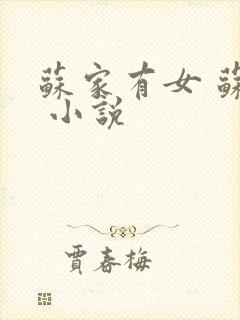 蘇家有女 蘇
小說
賈春梅